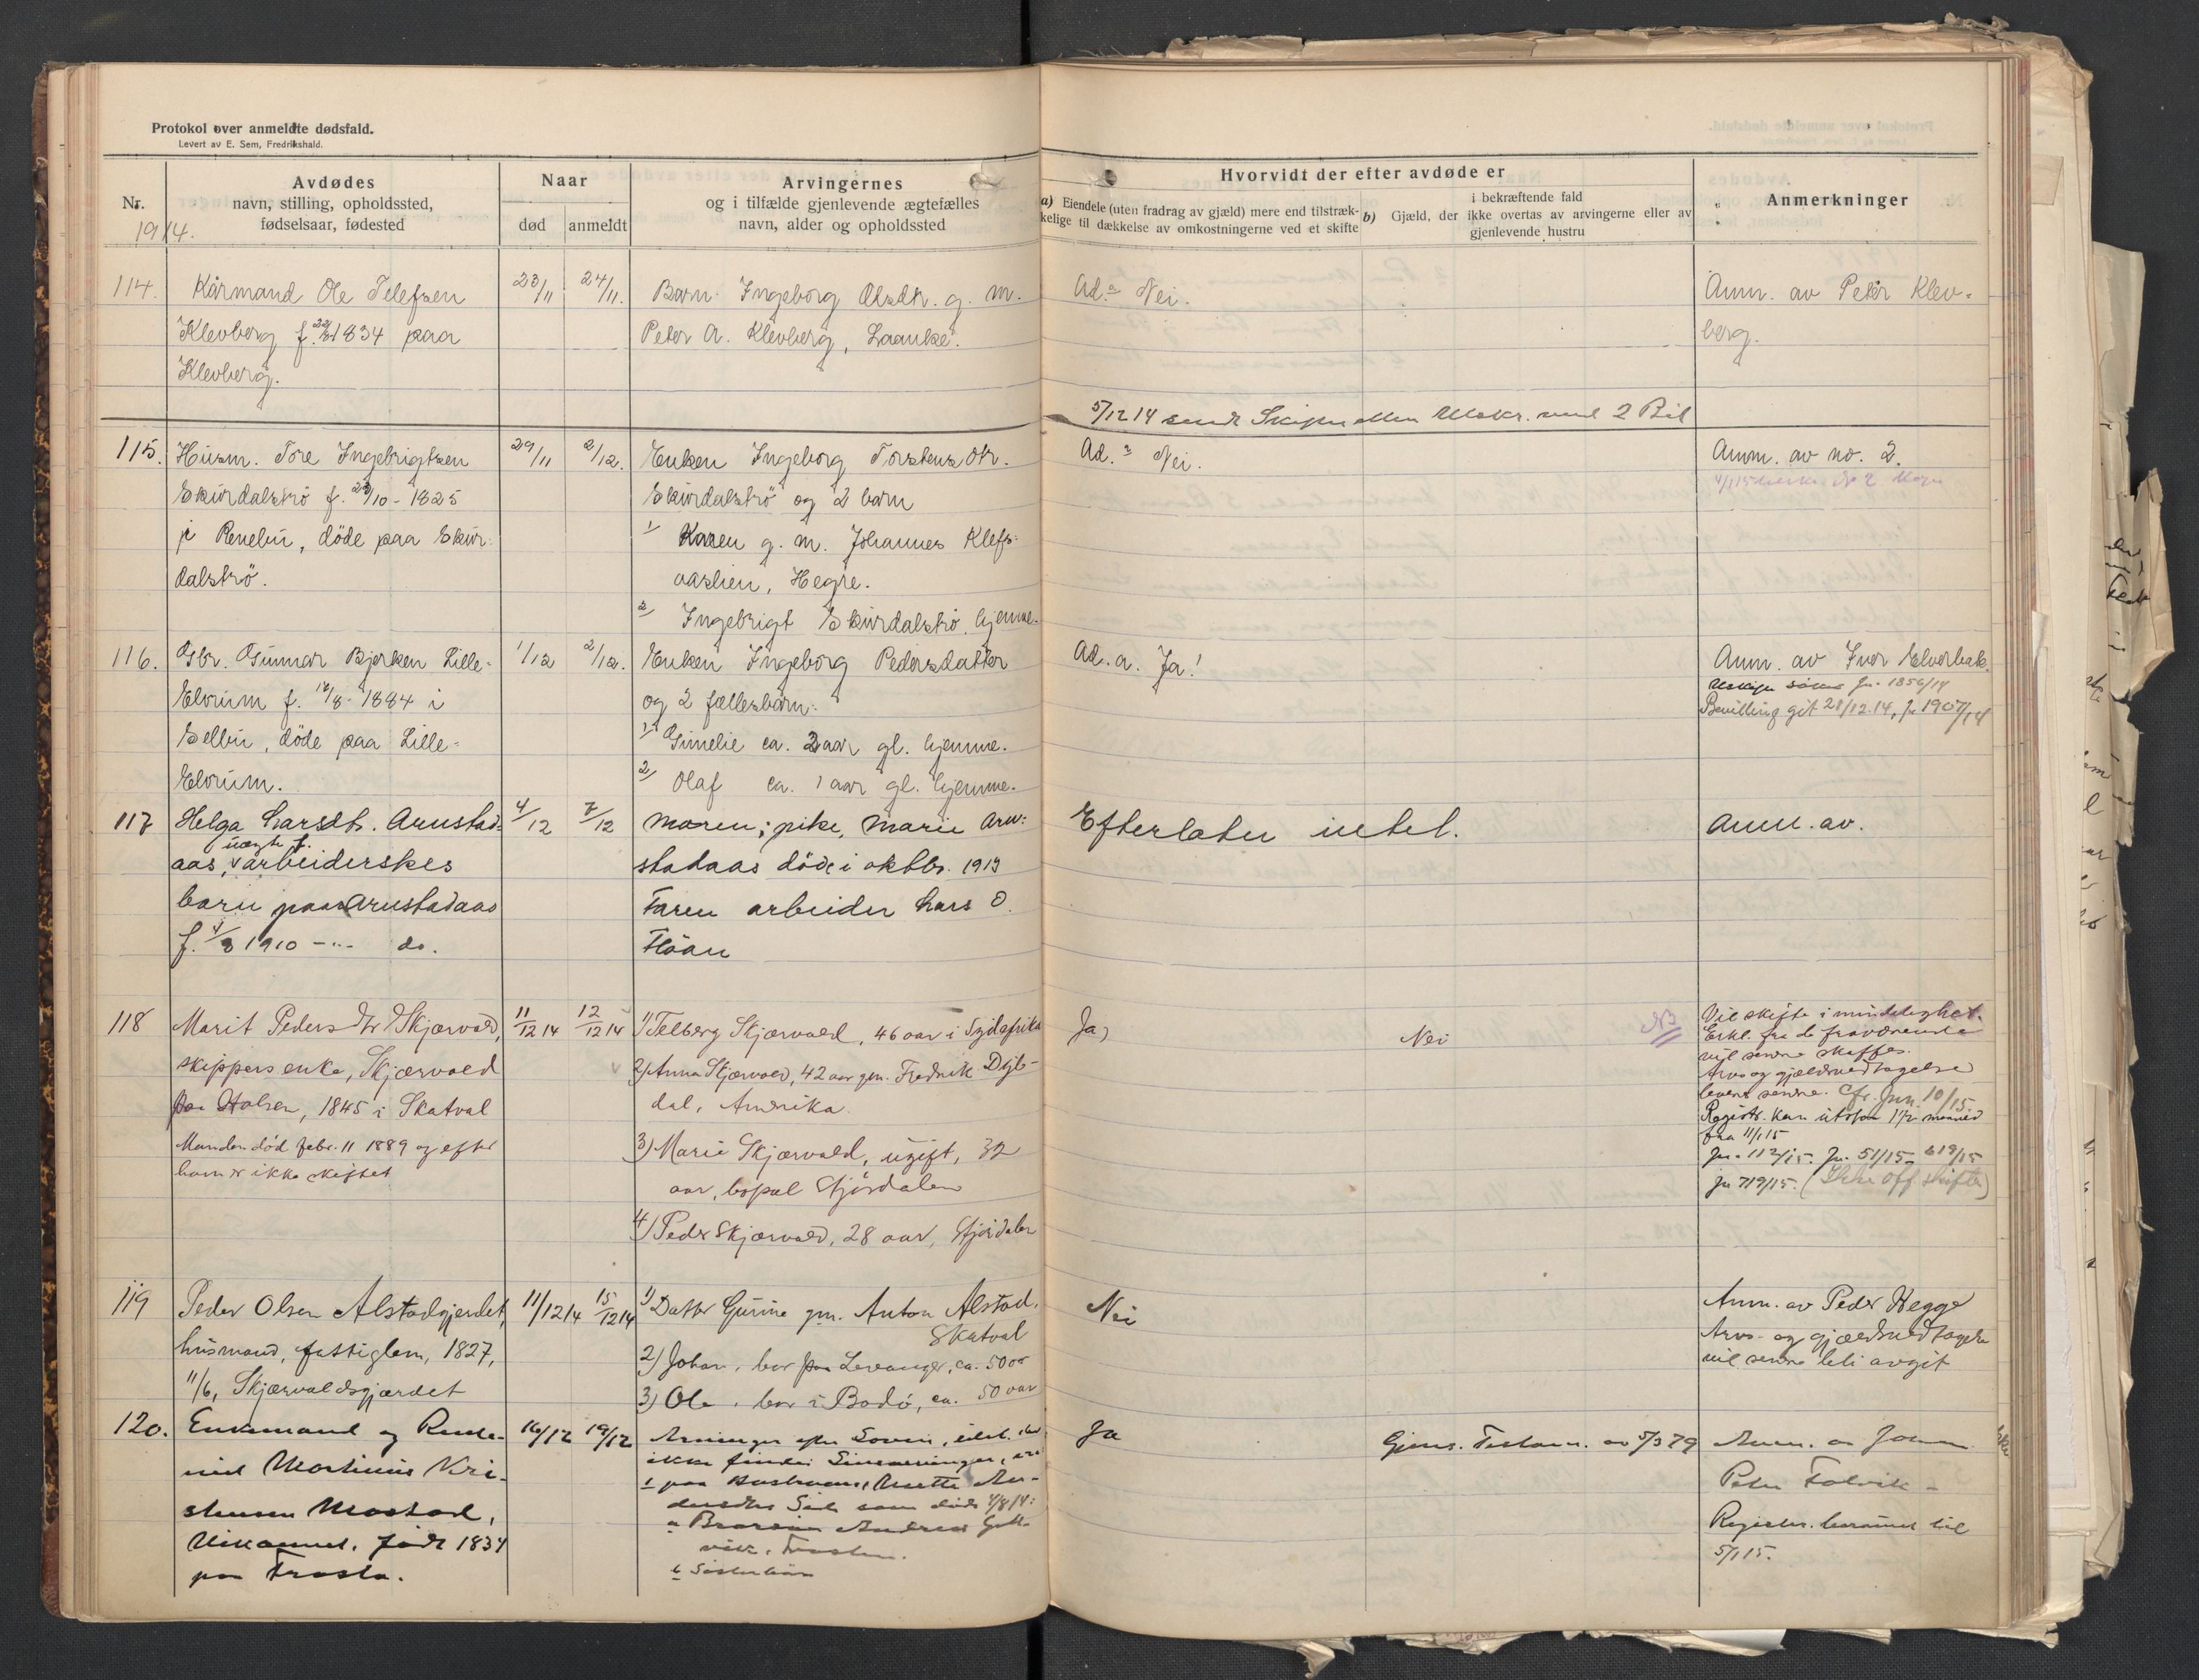 Protokol over anmeldte dødsfald.
Levert av E. Sem, Fredrikshald.
Nr.
1914.
Avdødes
navn, stilling, opholdssted,
fødselsaar, fødested
Naar
død
anmeldt
Arvingernes
og i tilfælde gjenlevende ægtefælles
navn, alder og opholdssted
Hvorvidt der efter avdøde er
a) Eiendele (uten fradrag av gjæld) mere end tilstræk-
kelige til dækkelse av omkostningerne ved et skifte
b) Gjæld, der
i bekræftende fald
ikke overtas av arvingerne eller av
gjenlevende hustru
Anmerkninger
114.
Kårmand Ole Telefsen
Klevberg f. 1834 paa
Klevberg.
23/11
24/11.
Barn: Ingeborg Olsdtr. g. m.
Peter A. Klevberg, Laanke.
Ad. a Nei.
Anm. av Peter Klev-
berg.
5/12 14 sendt med 2 Bil
115.
Husm. Tore Ingebrigtsen
Skurdalstrø f. 10 - 1825
i Renebu, døde paa Skur-
dalstrø.
29/11
2/12.
Enken Ingeborg Torstensdtr.
Skurdalstrø og 2 barn
1/ Karen g. m. Johannes Klefs-
aaslien, Hegre.
2/ Ingebrigt Skurdalstrø, hjemme.
Ad. a Nei.
Anm. av no. 2.
116.
Gbr. Gunnar Bjerken Lille-
Elvrum f. /8- 1884 i
Selbu, døde paa Lille-
Elvrum.
1/12
2/12.
Enken Ingeborg Pedersdatter
og 2 fællesbarn:
1/ Gunelie ca. 2 aar gl. hjemme.
2/ Olaf ca. 1 aar gl. hjemme.
Ad. a. Ja!
Anm. av Iver Elverbak.
Jn. 1856/14
Bevilling git 28/12.14, Jn 1907/14
117
Helga Larsdtr. Arnstad-
uægte f.
aas, arbeiderskes
barn paa Arnstadaas
f. 4/3 1910 -"- do.
4/12
7/12
Moren: pike, Marie Arn-
stadaas døde i oktbr. 1913
Faren arbeider Lars O.
Fløan
Efterlater intet.
Anm. av.
118
Marit Pedersdtr Skjærvold,
skippersenke, Skjærvold
paa Halsen, 1845 i Skatval
Manden død febr. 11 1889 og efter
ham er ikke skiftet
11/12 14
12/12 14
1) Telberg Skjærvold, 46 aar i Sydafrika
2) Anna Skjærvold, 42 aar gm. Fredrik Dyb-
dal, Amerika.
3) Marie Skjærvold, ugift, 32
aar, bopæl Stjørdalen
4) Peder Skjærvold, 28 aar, Stjørdalen
Ja,
Nei
NB
Vil skifte i mindelighet.
Erkl. fra de fraværende
vil senere skaffes.
Arvs og gjældsvedtagelse
levere senere. Cfr. Jnr. 10/15
Registr. kan utstaa 1 1/2 maaned
fra 11/1 15
Jn. 112/15. Jn. 51/15 619/15
Jn 719/15. (Ikke off skifte)
119
Peder Olsen Alstadgjerdet,
husmand, fattiglem, 1827,
11/6, Skjærvoldsgjærdet
11/12 14
15/12 14
1) Datter Gurine gm. Anton Alstad,
Skatval
2) Johan, bor paa Levanger, ca. 50 aar
3) Ole, bor i Bodø, ca. 50 aar
Nei
Anm. av Peder Hegge
Arvs- og gjældsvedtagelse
vil senere bli avgit
120.
Enkemand og Rente-
nist Martinus Kri-
stensen Mostad,
født 1834
paa Frosta.
16/12
19/12
Arvinger efter Loven,
ikke findes
1 paa Hustruens, Marthe An-
dersdtrs Side som døde 4/8 14:
a Broren Andreas
b Søsterbarn
Ja
Gjens. Testam. av 5/3 79
Anm. av Johan
Peter Falvik -
Register. berammet til
5/1 15.